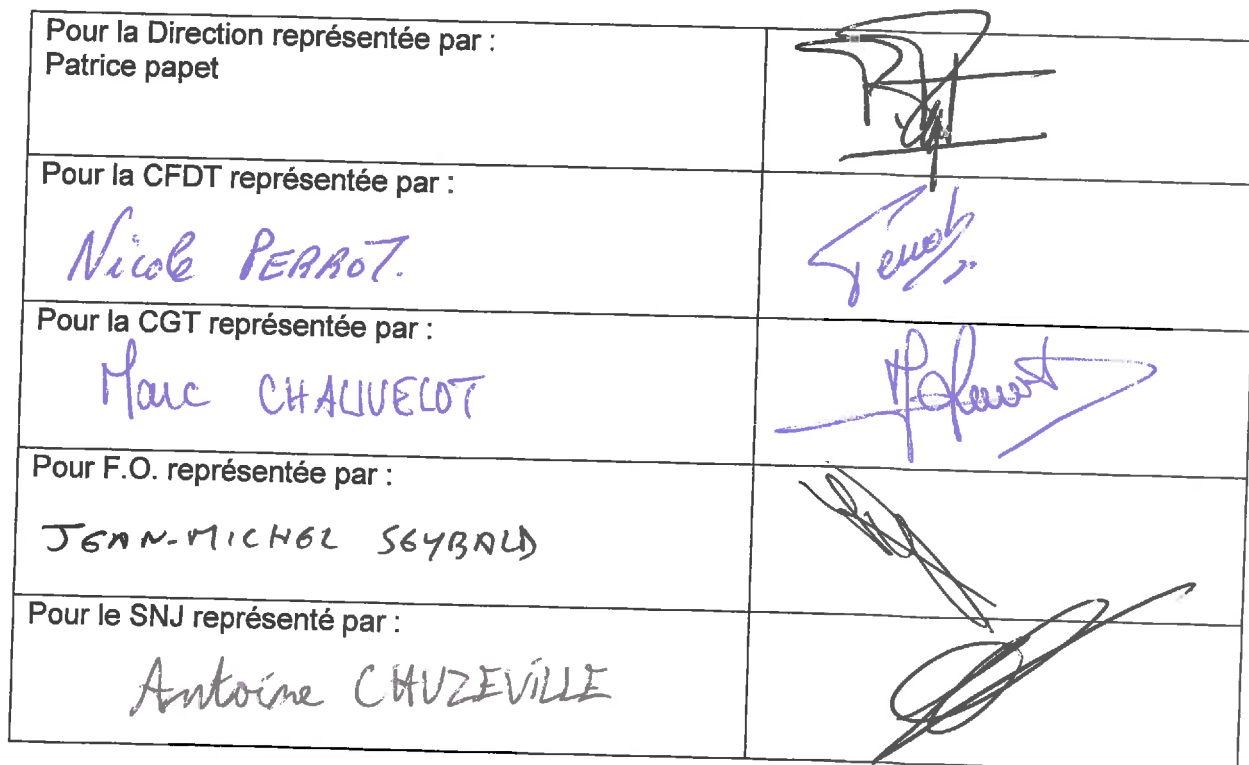 Pour la Direction représentée par :
Patrice papet
Pour la CFDT représentée par :
Nicole PERROT.
Pour la CGT représentée par :
Marc CHAUVELOT
Pour F.O. représentée par :
JEAN-MICHEL SEYBALD
Pour le SNJ représenté par :
Antoine CHUZEVILLE